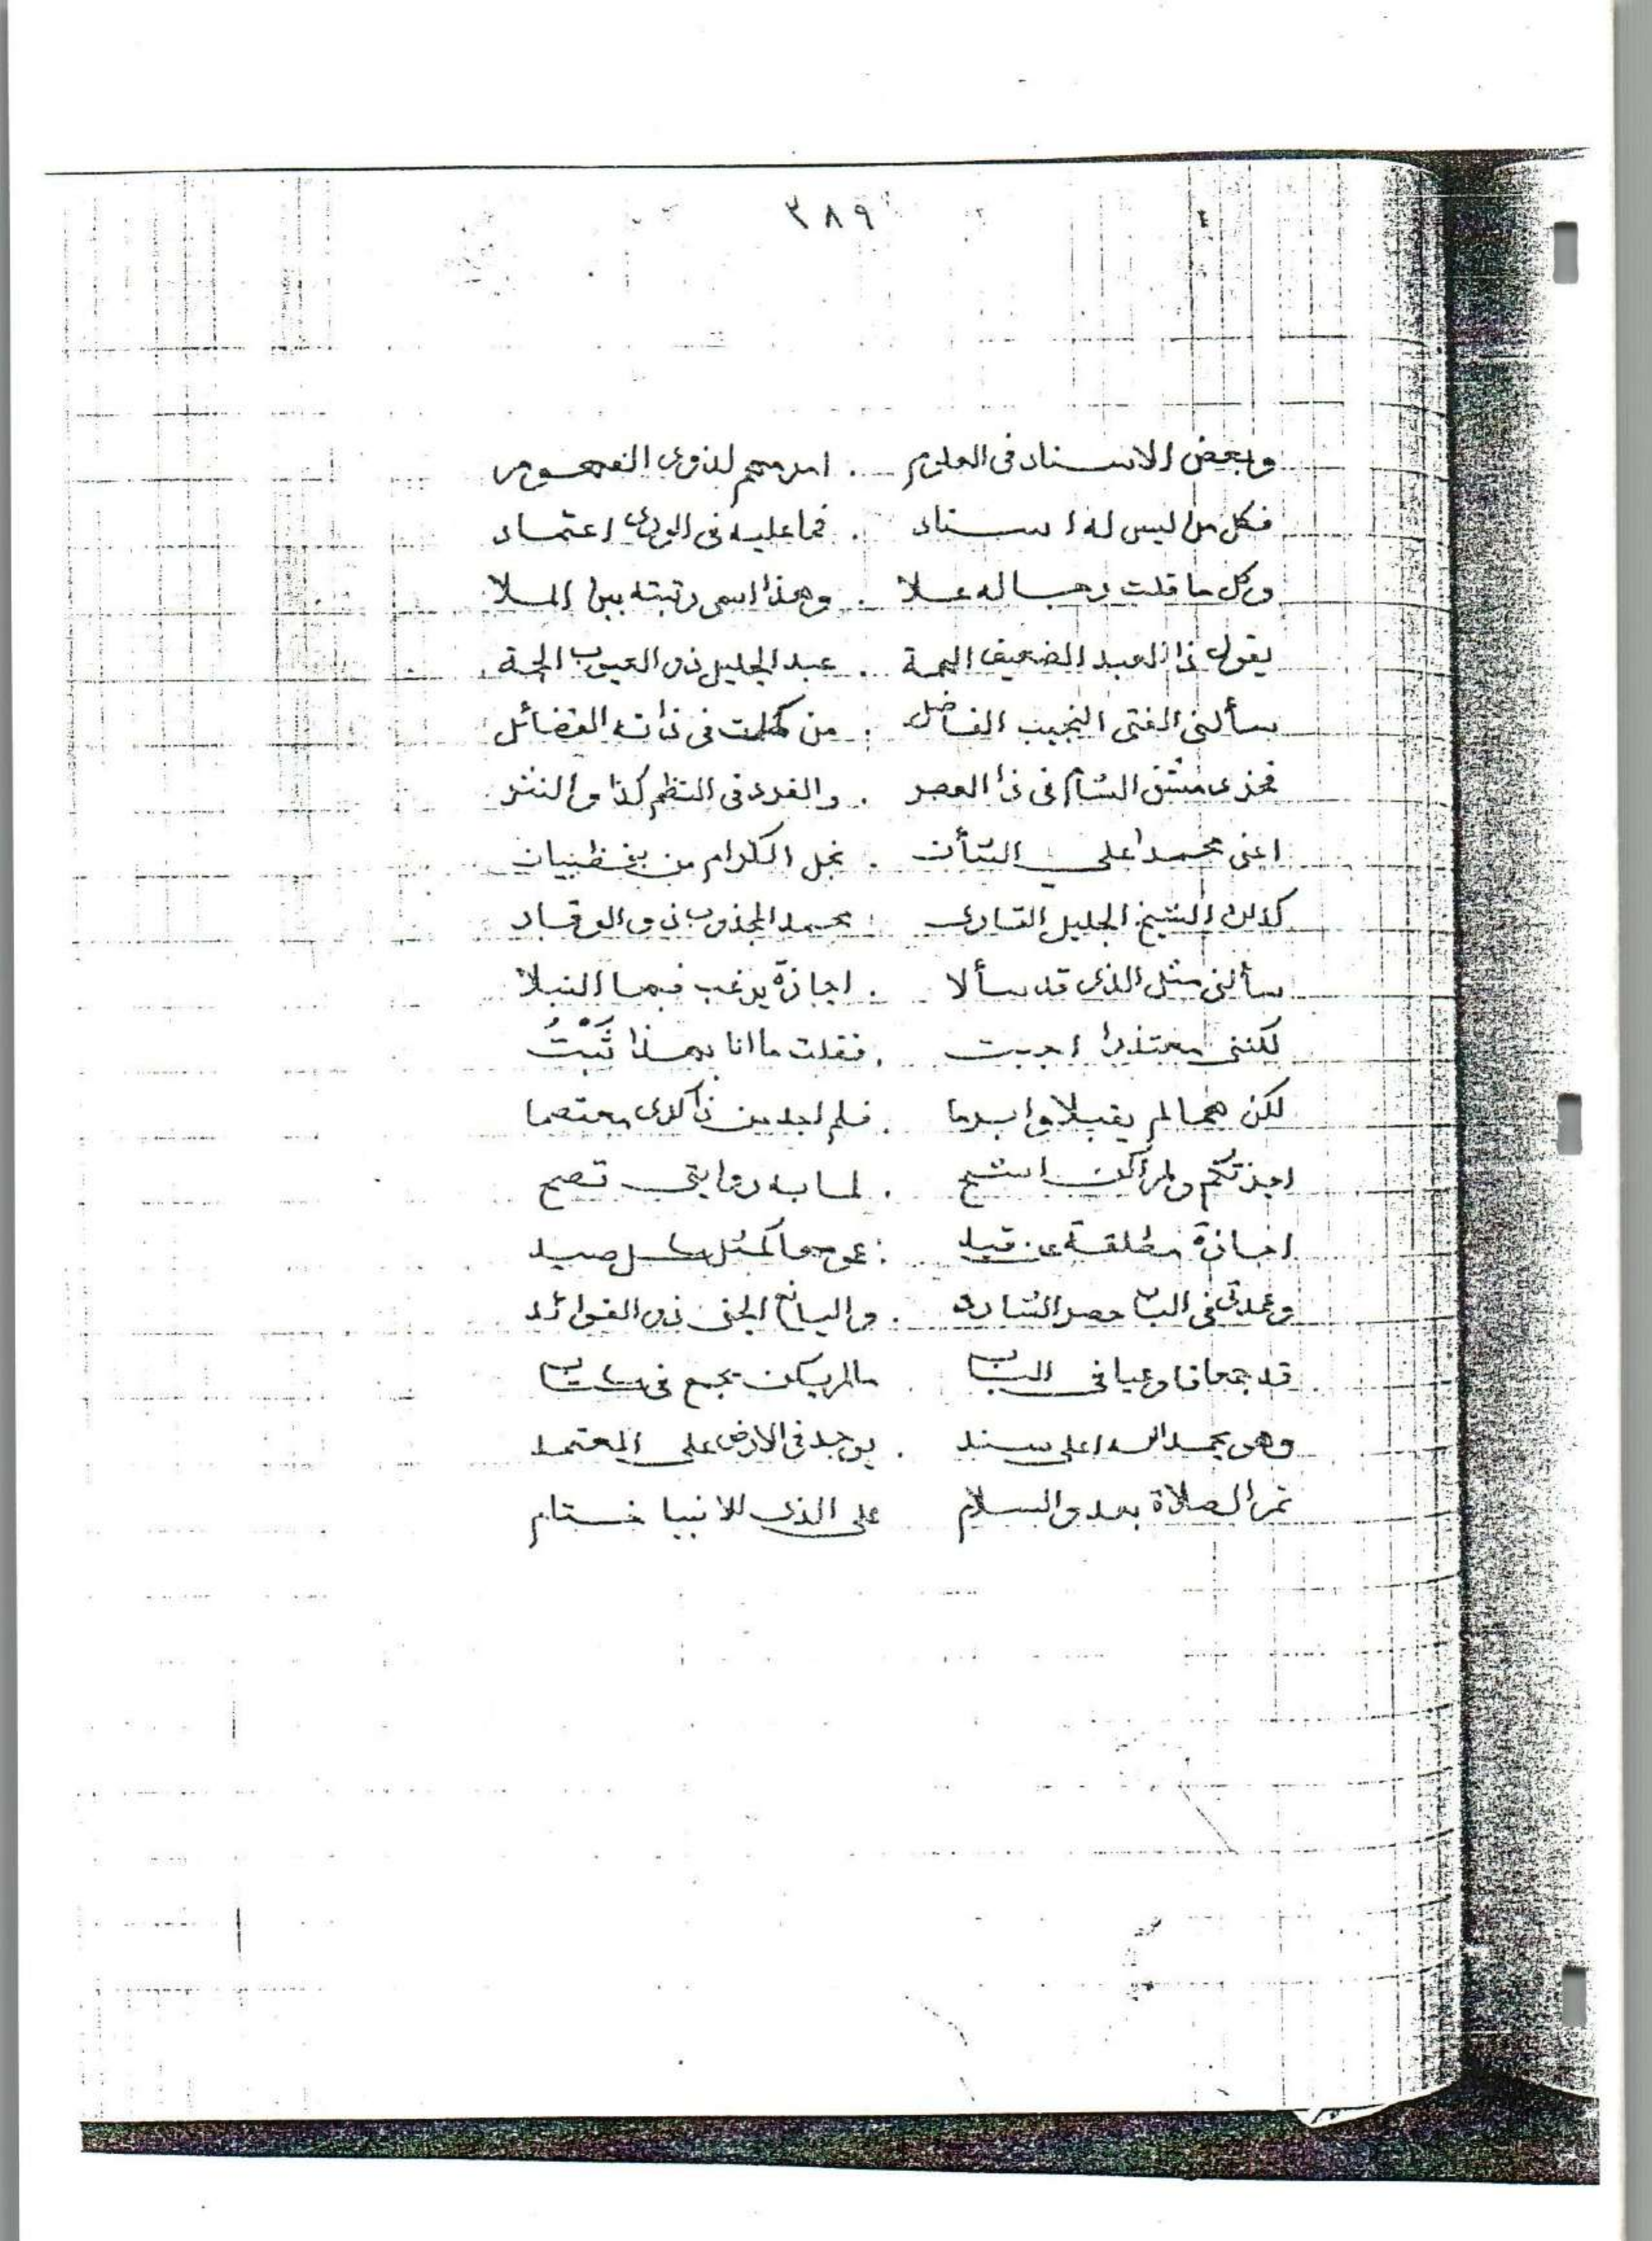 ٣٨٩
وبعض الاسناد فى العلوم . امر مهم لذوى الفهوم
فكل من ليس له اسناد . فما عليه فى الورى اعتماد
وكل ما قلت رجاله علا . وهذا اسمى رتبته بين الملا
يقول ذا العبد الضعيف الهمة . عبد الجليل ذو العيوب الجمة
سألنى الفتى النجيب الفاضل . من كملت فى ذاته الفضائل
فخر دمشق الشام فى ذا العصر . والفرد فى النظم كذا والنثر
اعنى محمدا على الشأن . نجل الكرام من بنى ظبيان
كذلك الشيخ الجليل القارى . محمد المجذوب ذو الوقار
سألنى مثل الذى قد سألا . اجازة يرغب فيها النبلا
لكننى معتذرا اجبت . فقلت ما انا بهذا ثَبْتُ
لكن هما لم يقبلا وابرما . فلم اجد من ذا لدى معتصما
اجزتكم ولم اكن اشح . لما به روايتى تصح
اجازة مطلقة عن قيد .
وعمدتى فى الباب حصر الشارد . واليانع الجنى ذى الفوائد
قد جمعا فاوعيا فى الباب ما لم يكن يجمع فى كتاب
وهو بحمد الله اعلى سند . يوجد فى الارض على المعتمد
ثم الصلاة بعد والسلام على الذى للانبيا ختام